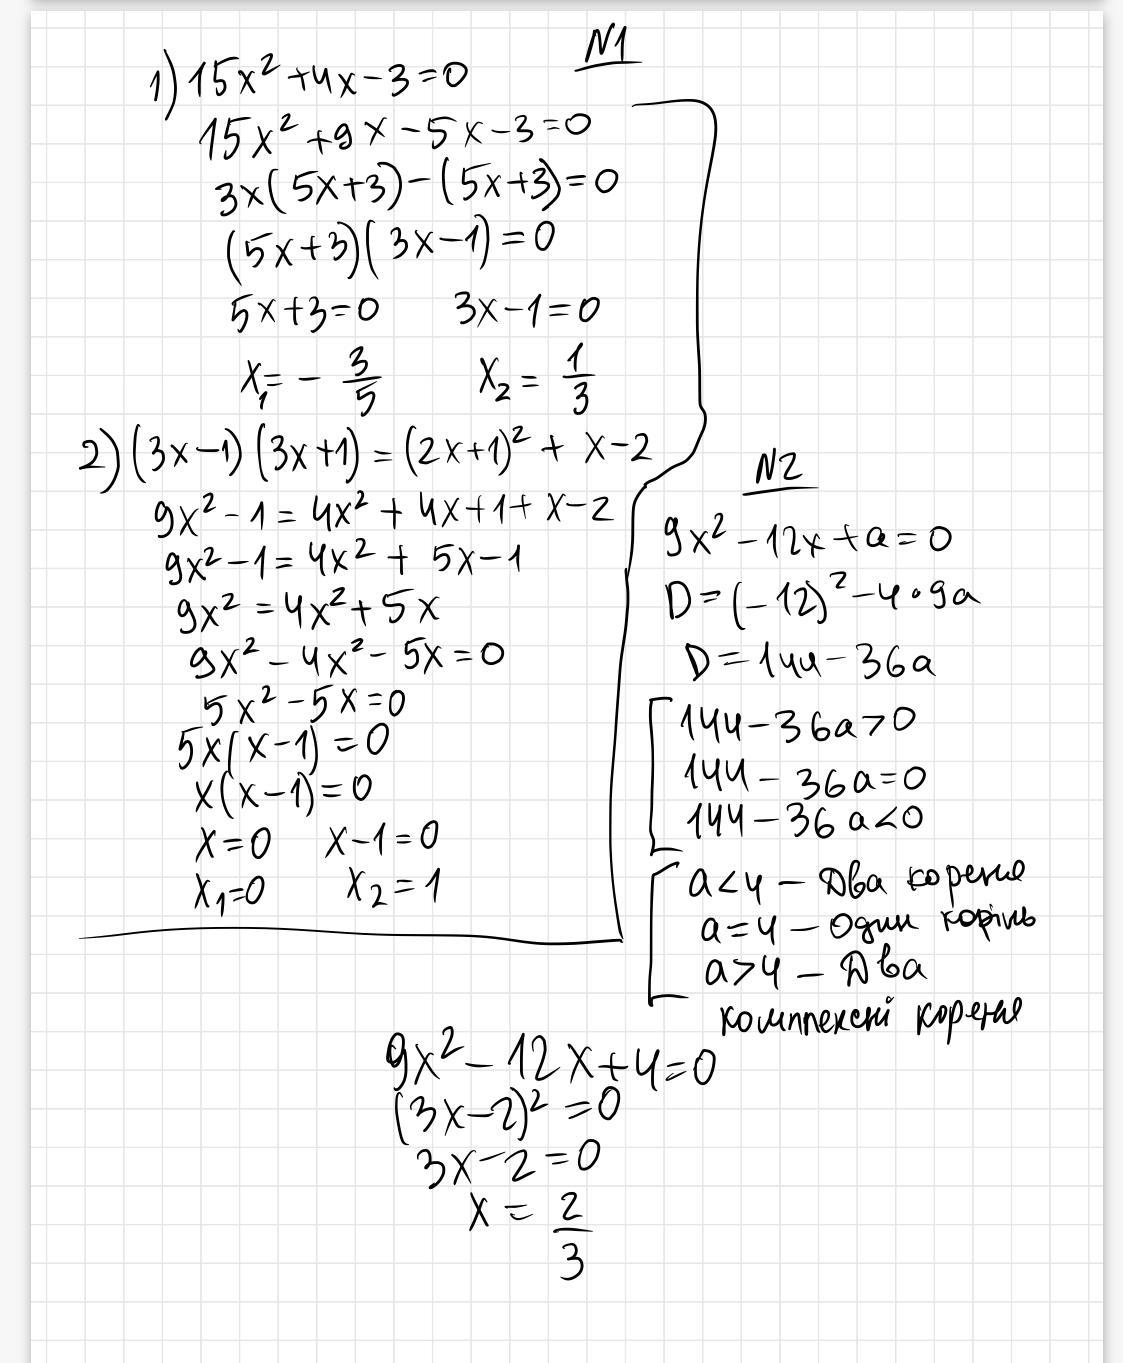 N1
1) 15x² + 4x - 3 = 0
15x² + 9x - 5x - 3 = 0
3x(5x+3) - (5x+3) = 0
(5x+3)(3x-1) = 0
5x+3=0 3x-1=0
x₁ = - 3/5 x₂ = 1/3
2) (3x-1)(3x+1) = (2x+1)² + x-2
9x² - 1 = 4x² + 4x+1 + x-2
9x² - 1 = 4x² + 5x - 1
9x² = 4x² + 5x
9x² - 4x² - 5x = 0
5x² - 5x = 0
5x(x-1) = 0
x(x-1) = 0
x=0 x-1=0
x₁=0 x₂=1
N2
9x² - 12x + a = 0
D = (-12)² - 4·9a
D = 144 - 36a
144 - 36a > 0
144 - 36a = 0
144 - 36a < 0
a<4 - Два кореня
a=4 - один корінь
a>4 - Два
комплексні кореня
9x² - 12x + 4 = 0
(3x-2)² = 0
3x - 2 = 0
x = 2/3